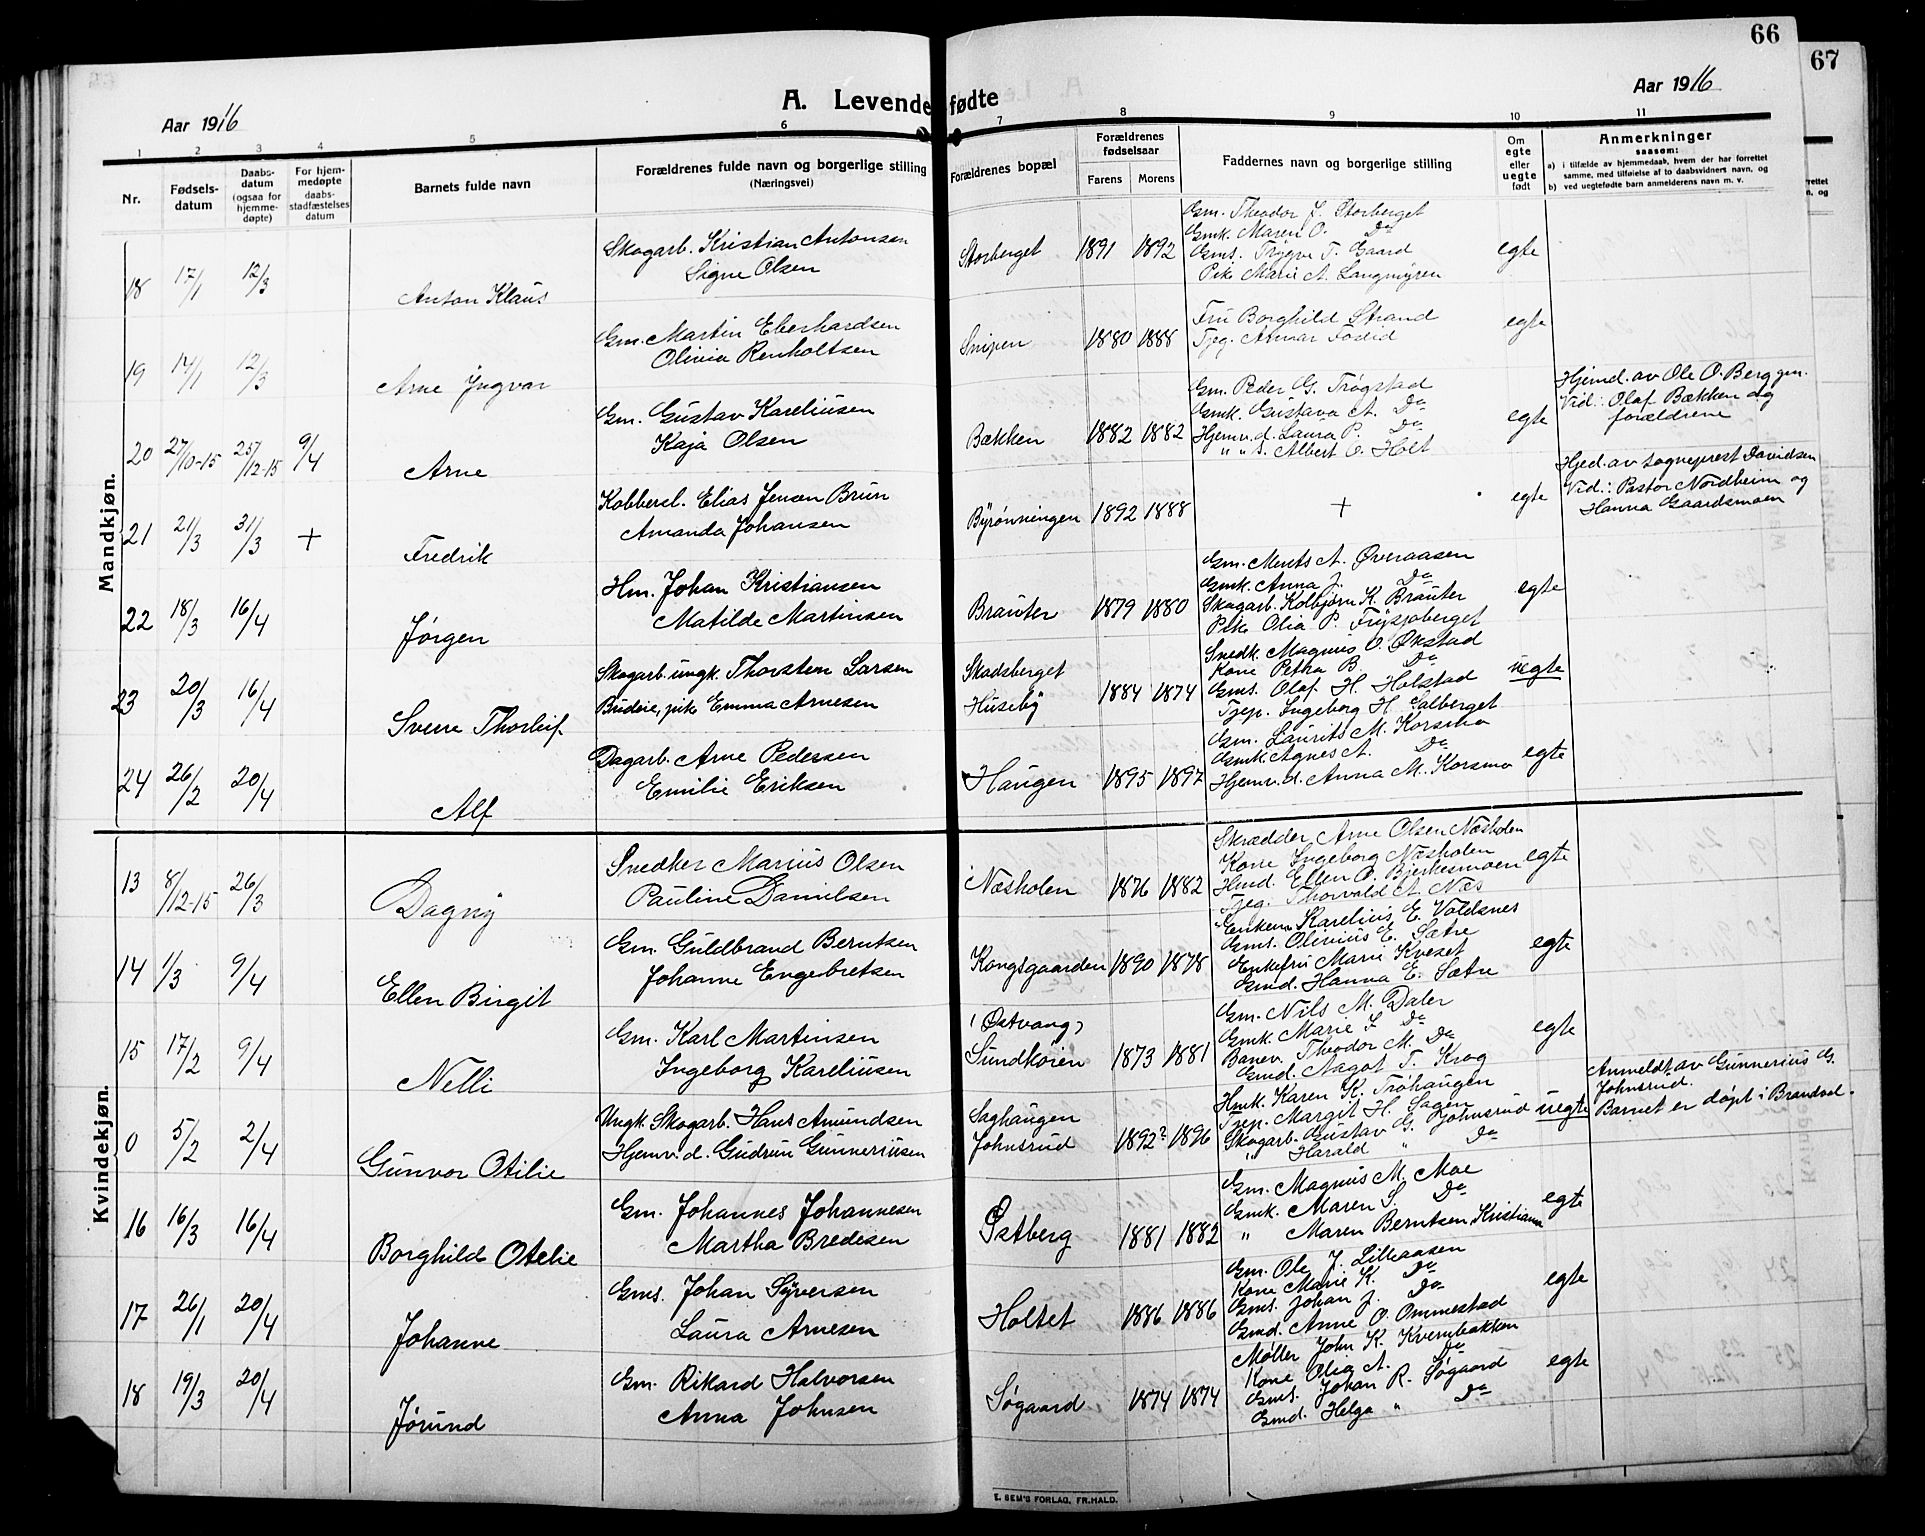 66
67
Aar 1916
A. Levende fødte
Aar 1916
1 2 3 4 5 6 7 8 9 10 11
Nr.
Fødsels-
datum
Daabs-
datum
(ogsaa for
hjemme-
døpte)
For hjem-
medøpte
daabs-
stadfæstelses
datum
Barnets fulde navn
Forældrenes fulde navn og borgerlige stilling
(Næringsvei)
Forældrenes bopæl
Forældrenes
fødselsaar
Farens Morens
Faddernes navn og borgerlige stilling
Om
egte
eller
uegte
født
Anmerkninger
saasom:
a) i tilfælde av hjemmedaab, hvem der har forrettet
samme, med tilføielse af to daabsvidners navn, og
b) ved uegtefødte barn anmelderens navn m. v.
Mandkjøn.
18 17/1 12/3 Anton Klaus
Skogarb. Kristian Antonsen
Signe Olsen
Storberget 1891 1892
Gm. Theodor J. Storberget
Gmk. Maren O. Do
Gms. Trygve T. Gaard
Pike Marie A. Langmyren
egte
19 14/1 12/3 Arne Ingvar
Gm. Martin Eberhardsen
Olivia Renholtsen
Snipen 1880 1888
Fru Borghild Strand
Tjeg. Annar Fodid
egte
20 27/10-15 25/12-15 9/4 Arne
Gm. Gustav Kareliusen
Kaja Olsen
Bækken 1882 1882
Gm. Peder G. Trøgstad
Gmk. Gustava A. Do
Hjemv. d. Laura P. Do
" " s. Albert O. Holt
egte
Hjemd. av Ole O. Berg gm.
Vid.: Olaf Bækken og
forældrene
21 21/3 31/3 + Fredrik
Kobbersl. Elias Jensen Brun
Amanda Johansen
Byrønningen 1892 1888
+
egte
Hjed. av sogneprest Davidsen
Vid.: Pastor Nordheim og
Hanna Gaardsmoen
22 18/3 16/4 Jørgen
Hm. Johan Kristiansen
Matilde Martinsen
Brauter 1879 1880
Gm. Ments A. Øveraasen
Gmk. Anna J. Do
Skogarb. Kolbjørn K. Brauter
Pike Olia P. Frysjøberget
egte
23 20/3 16/4 Sverre Thorleif
Skogarb. ungk. Thorsten Larsen
Budeie, pike Emma Arnesen
Skadsberget
Huseby 1884 1874
Snedk. Magnus O. Økstad
Kone Petha B. Do
Gms. Olaf H. Holstad
Tjep. Ingeborg H. Galberget
uegte
24 26/2 20/4 Alf
Dagarb. Arne Pedersen
Emilie Eriksen
Haugen 1895 1897
Gm. Laurits M. Korsmo
Gmk. Agnes A. Do
Hjemv. d. Anna M. Korsmo
egte
Kvindekjøn.
13 8/12-15 26/3 Dagny
Snedker Marius Olsen
Pauline Danielsen
Næsholen 1876 1882
Skrædder Arne Olsen Næsholen
Kone Ingeborg Næsholen
Hmd. Ellen O. Bjerkesmoen
Tjeg. Thorvald A. Næs
egte
14 1/3 9/4 Ellen Birgit
Gm. Guldbrand Berntsen
Johanne Engebretsen
Kongsgaarden 1890 1878
Enkem. Karelius E. Voldsnes
Gms. Olivius E. Sætre
Enkefru Marie Kveset
Gmd. Hanna E. Sætre
egte
15 17/2 9/4 Nelli
Gm. Karl Martinsen
Ingeborg Kareliusen
(Østvang)
Sundkoien 1873 1881
Gm. Nils M. Daler
Gmk. Marie F. Do
Banev. Theodor M. Do
Gmd. Nagot T. Krog
egte
0 5/2 2/4 Gunvor Otilie
Ungk. Skogarb. Hans Amundsen
Hjemv. d. Gudrun Gunneriusen
Saghaugen
Johnsrud 1892? 1896
Hmk. Karen K. Trøhaugen
Tjep. Margit H. Sagen
Skogarb. Gustav G. Johnsrud
" Harald " Do
uegte
Anmeldt av Gunnerius G.
Johnsrud.
Barnet er døpt i Brandval.
16 16/3 16/4 Borghild Otelie
Gm. Johannes Johannesen
Martha Bredesen
Østberg 1881 1882
Gm. Magnus M. Moe
Gmk. Maren S. Do
" Maren Berntsen, Kristiania
egte
17 26/1 20/4 Johanne
Gms. Johan Syversen
Laura Arnesen
Holtet 1886 1886
Gm. Ole J. Lilleaasen
Kone Marie K. Do
Gms. Johan J. Do
Gmd. Anne O. Ommestad
egte
18 19/3 20/4 Jørund
Gm. Rikard Halvorsen
Anna Johnsen
Søgaard 1874 1874
Møller John K. Kvernbakken
Kone Olia A. Do
Gms. Johan R. Søgaard
Gmd. Helga " Do
egte
E. SEM'S FORLAG, FR.HALD.